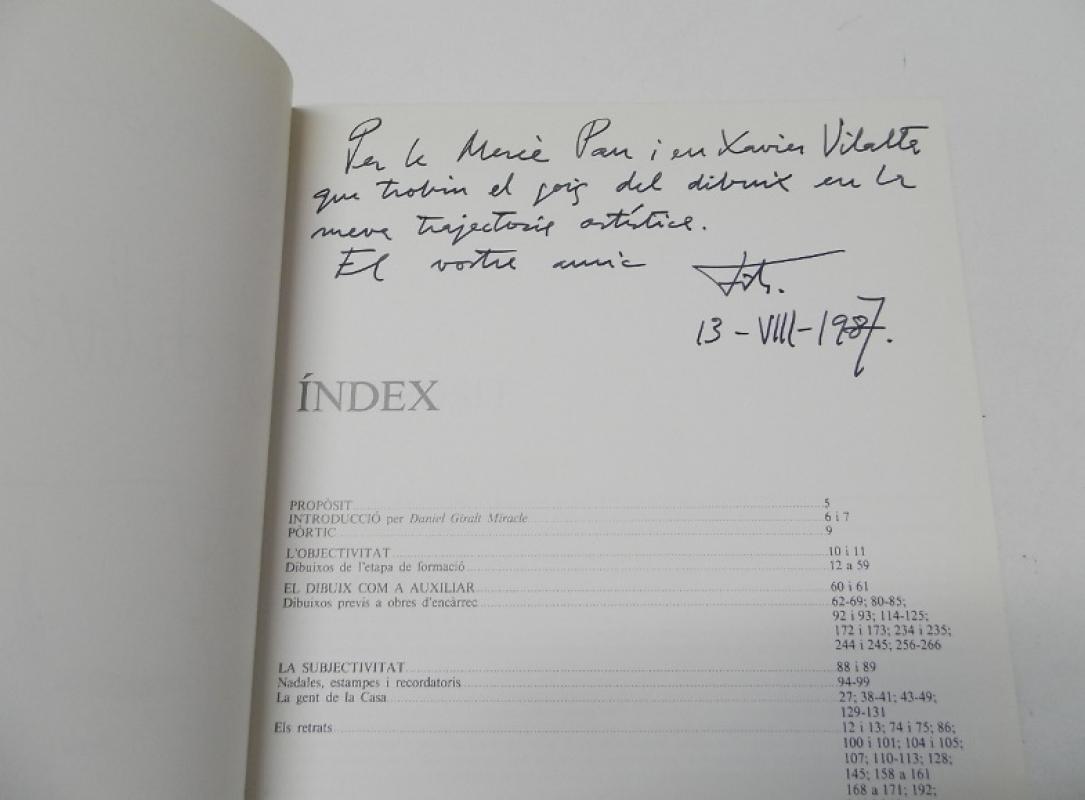 Per la Mercè Pau i en Xavier Vilalta
que trobin el goig del dibuix en la
meva trajectoria artística.
El vostre amic
13-VIII-1987.
ÍNDEX
PROPÒSIT 5
INTRODUCCIÓ per Daniel Giralt Miracle 6 i 7
PÒRTIC 9
L'OBJECTIVITAT 10 i 11
Dibuixos de l'etapa de formació 12 a 59
EL DIBUIX COM A AUXILIAR 60 i 61
Dibuixos previs a obres d'encàrrec 62-69; 80-85;
92 i 93; 114-125;
172 i 173; 234 i 235;
244 i 245; 256-266
LA SUBJECTIVITAT 88 i 89
Nadales, estampes i recordatoris 94-99
La gent de la Casa 27; 38-41; 43-49;
129-131
Els retrats 12 i 13; 74 i 75; 86;
100 i 101; 104 i 105;
107; 110-113; 128;
145; 158 a 161
168 a 171; 192;